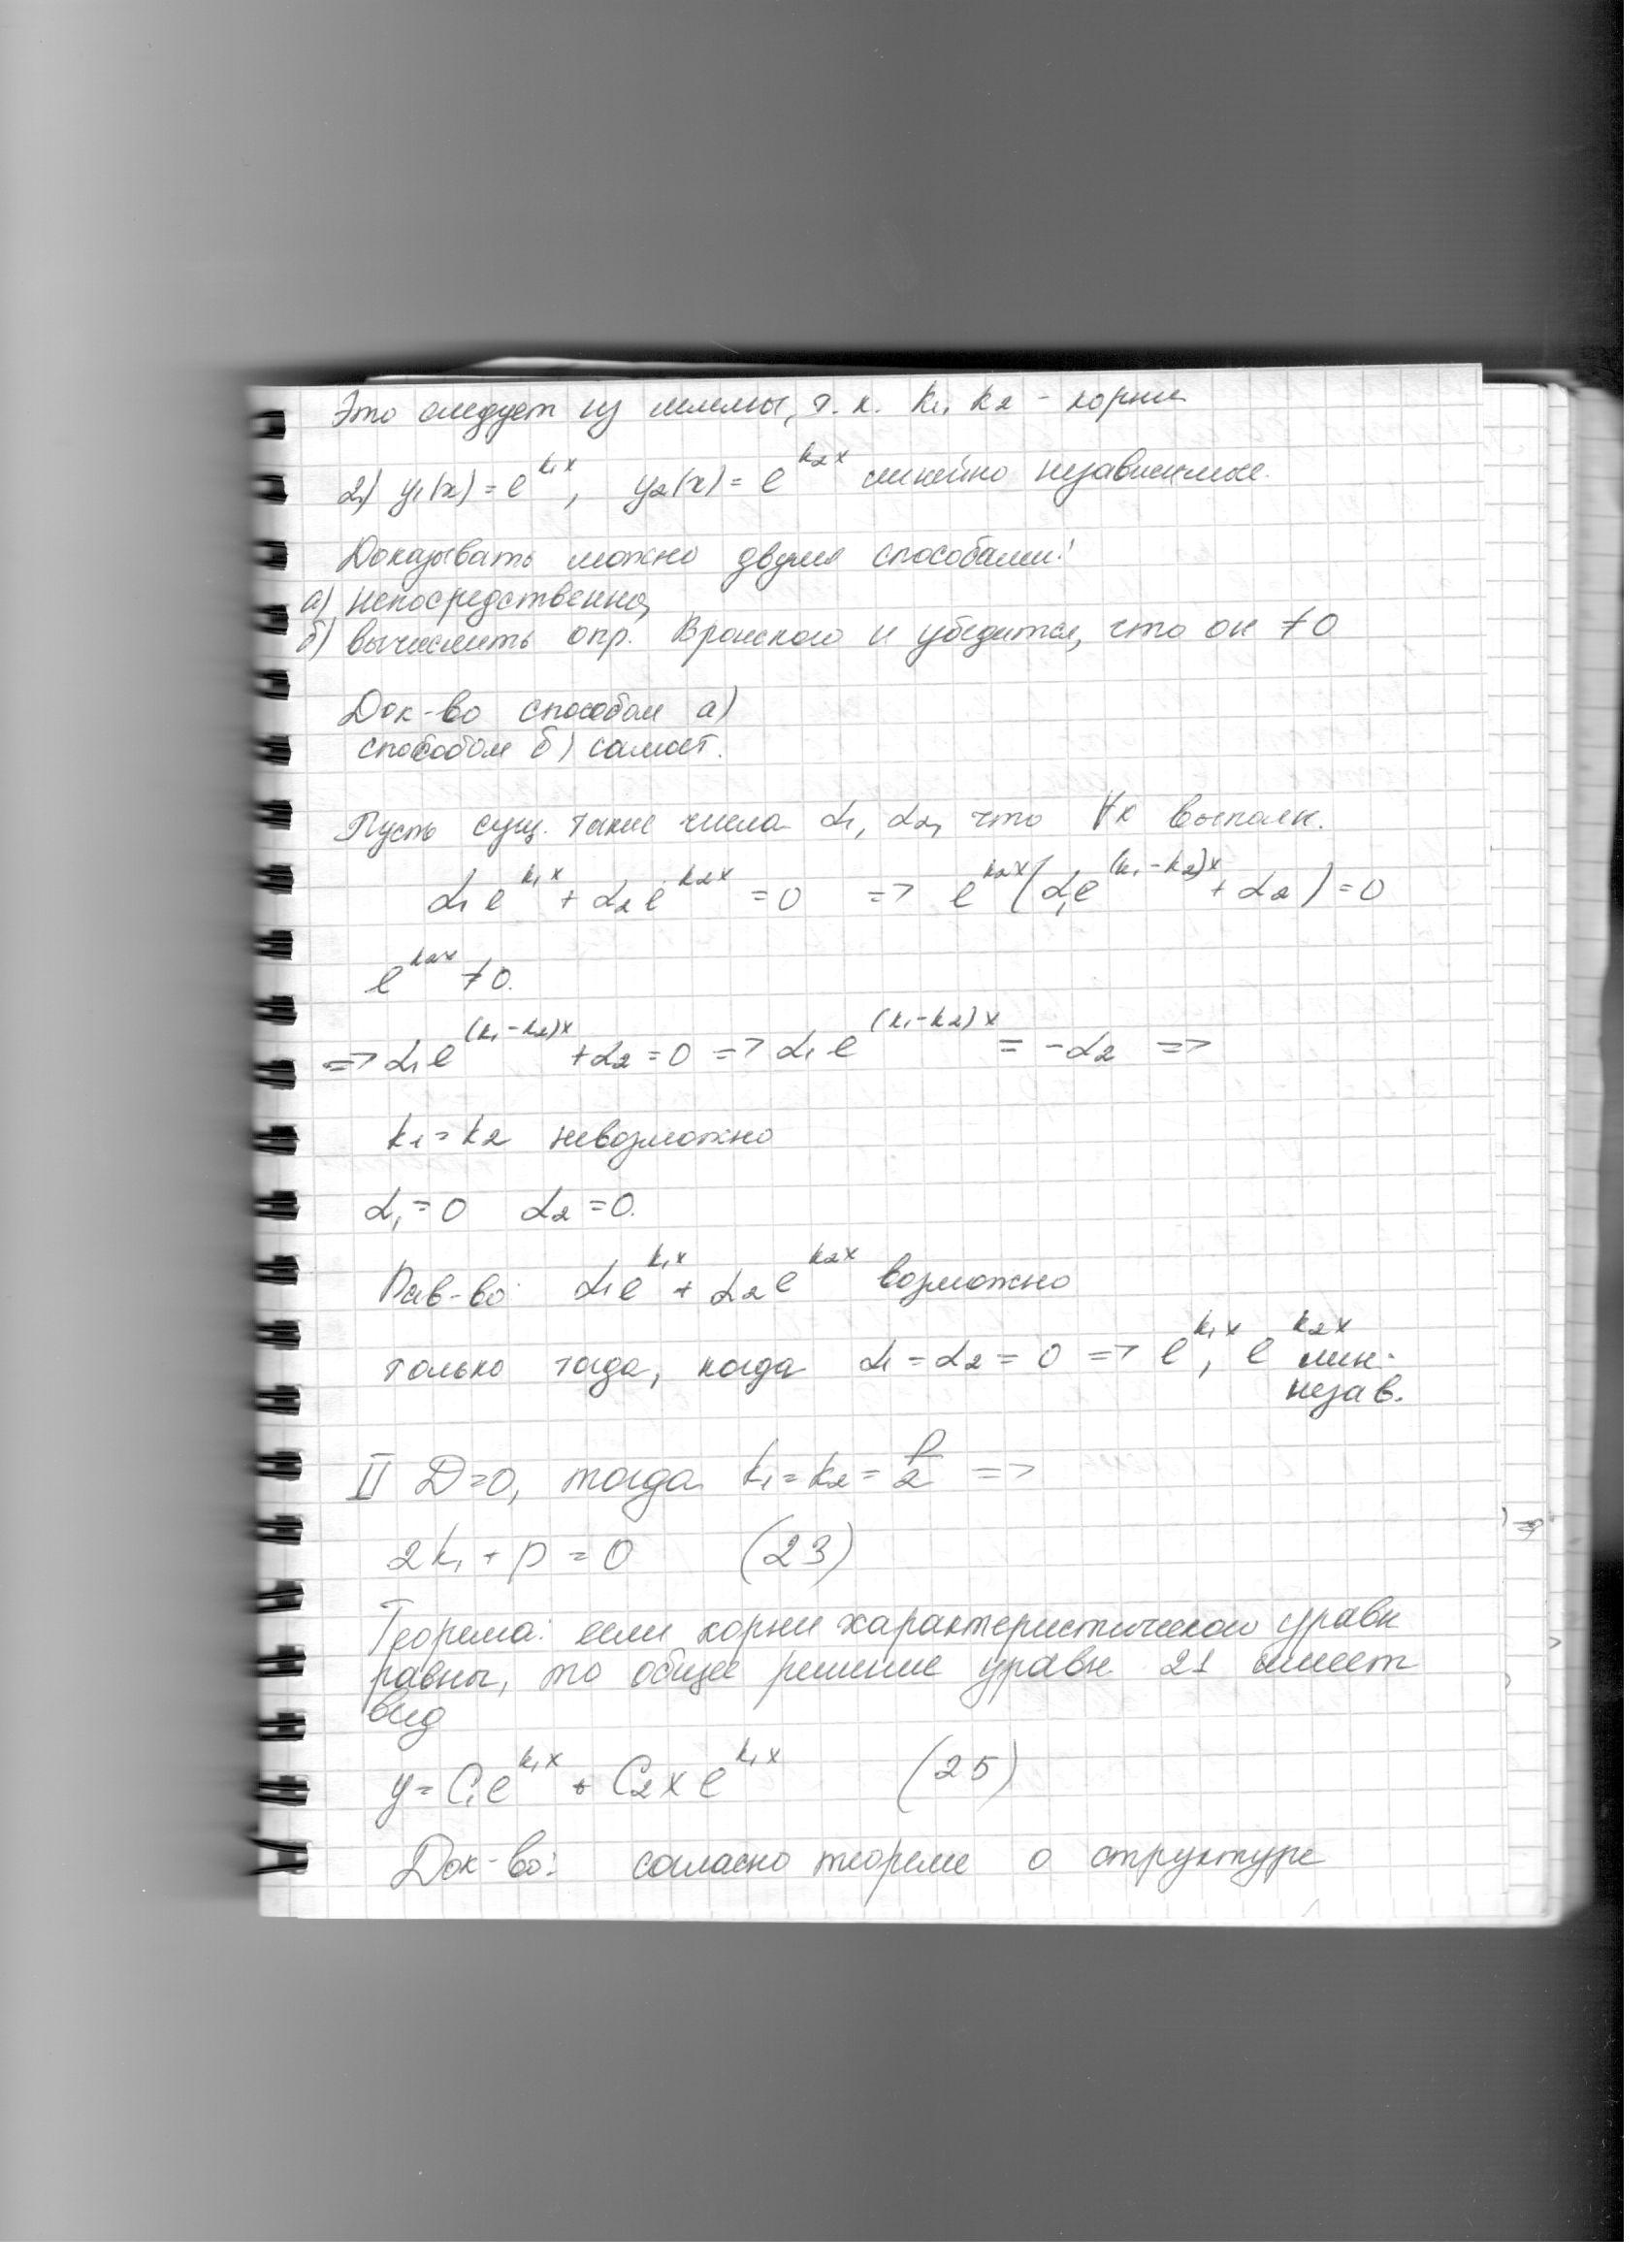 Это следует из леммы, т.к. k₁, k₂ - корни
2) y₁(x) = e^{k₁x}, y₂(x) = e^{k₂x} линейно независимые.
Доказывать можно двумя способами:
а) непосредственно,
б) вычислить опр. Вронского и убедится, что он ≠ 0
Док-во способом а)
способом б) самост.
Пусть сущ. такие числа α₁, α₂, что ∀x выполн.
α₁e^{k₁x} + α₂e^{k₂x} = 0 => e^{k₂x}(α₁e^{(k₁-k₂)x} + α₂) = 0
e^{k₂x} ≠ 0.
=> α₁e^{(k₁-k₂)x} + α₂ = 0 => α₁e^{(k₁-k₂)x} = -α₂ =>
k₁ = k₂ невозможно
α₁ = 0 α₂ = 0.
Рав-во α₁e^{k₁x} + α₂e^{k₂x} возможно
только тогда, когда α₁ = α₂ = 0 => e^{k₁x}, e^{k₂x} лин.
незав.
II D=0, тогда k₁ = k₂ = p/2 =>
2k₁ + p = 0 (23)
Теорема: если корни характеристического уравн
равны, то общее решение уравн 21 имеет
вид
y = C₁e^{k₁x} + C₂xe^{k₁x} (25)
Док-во: согласно теореме о структуре